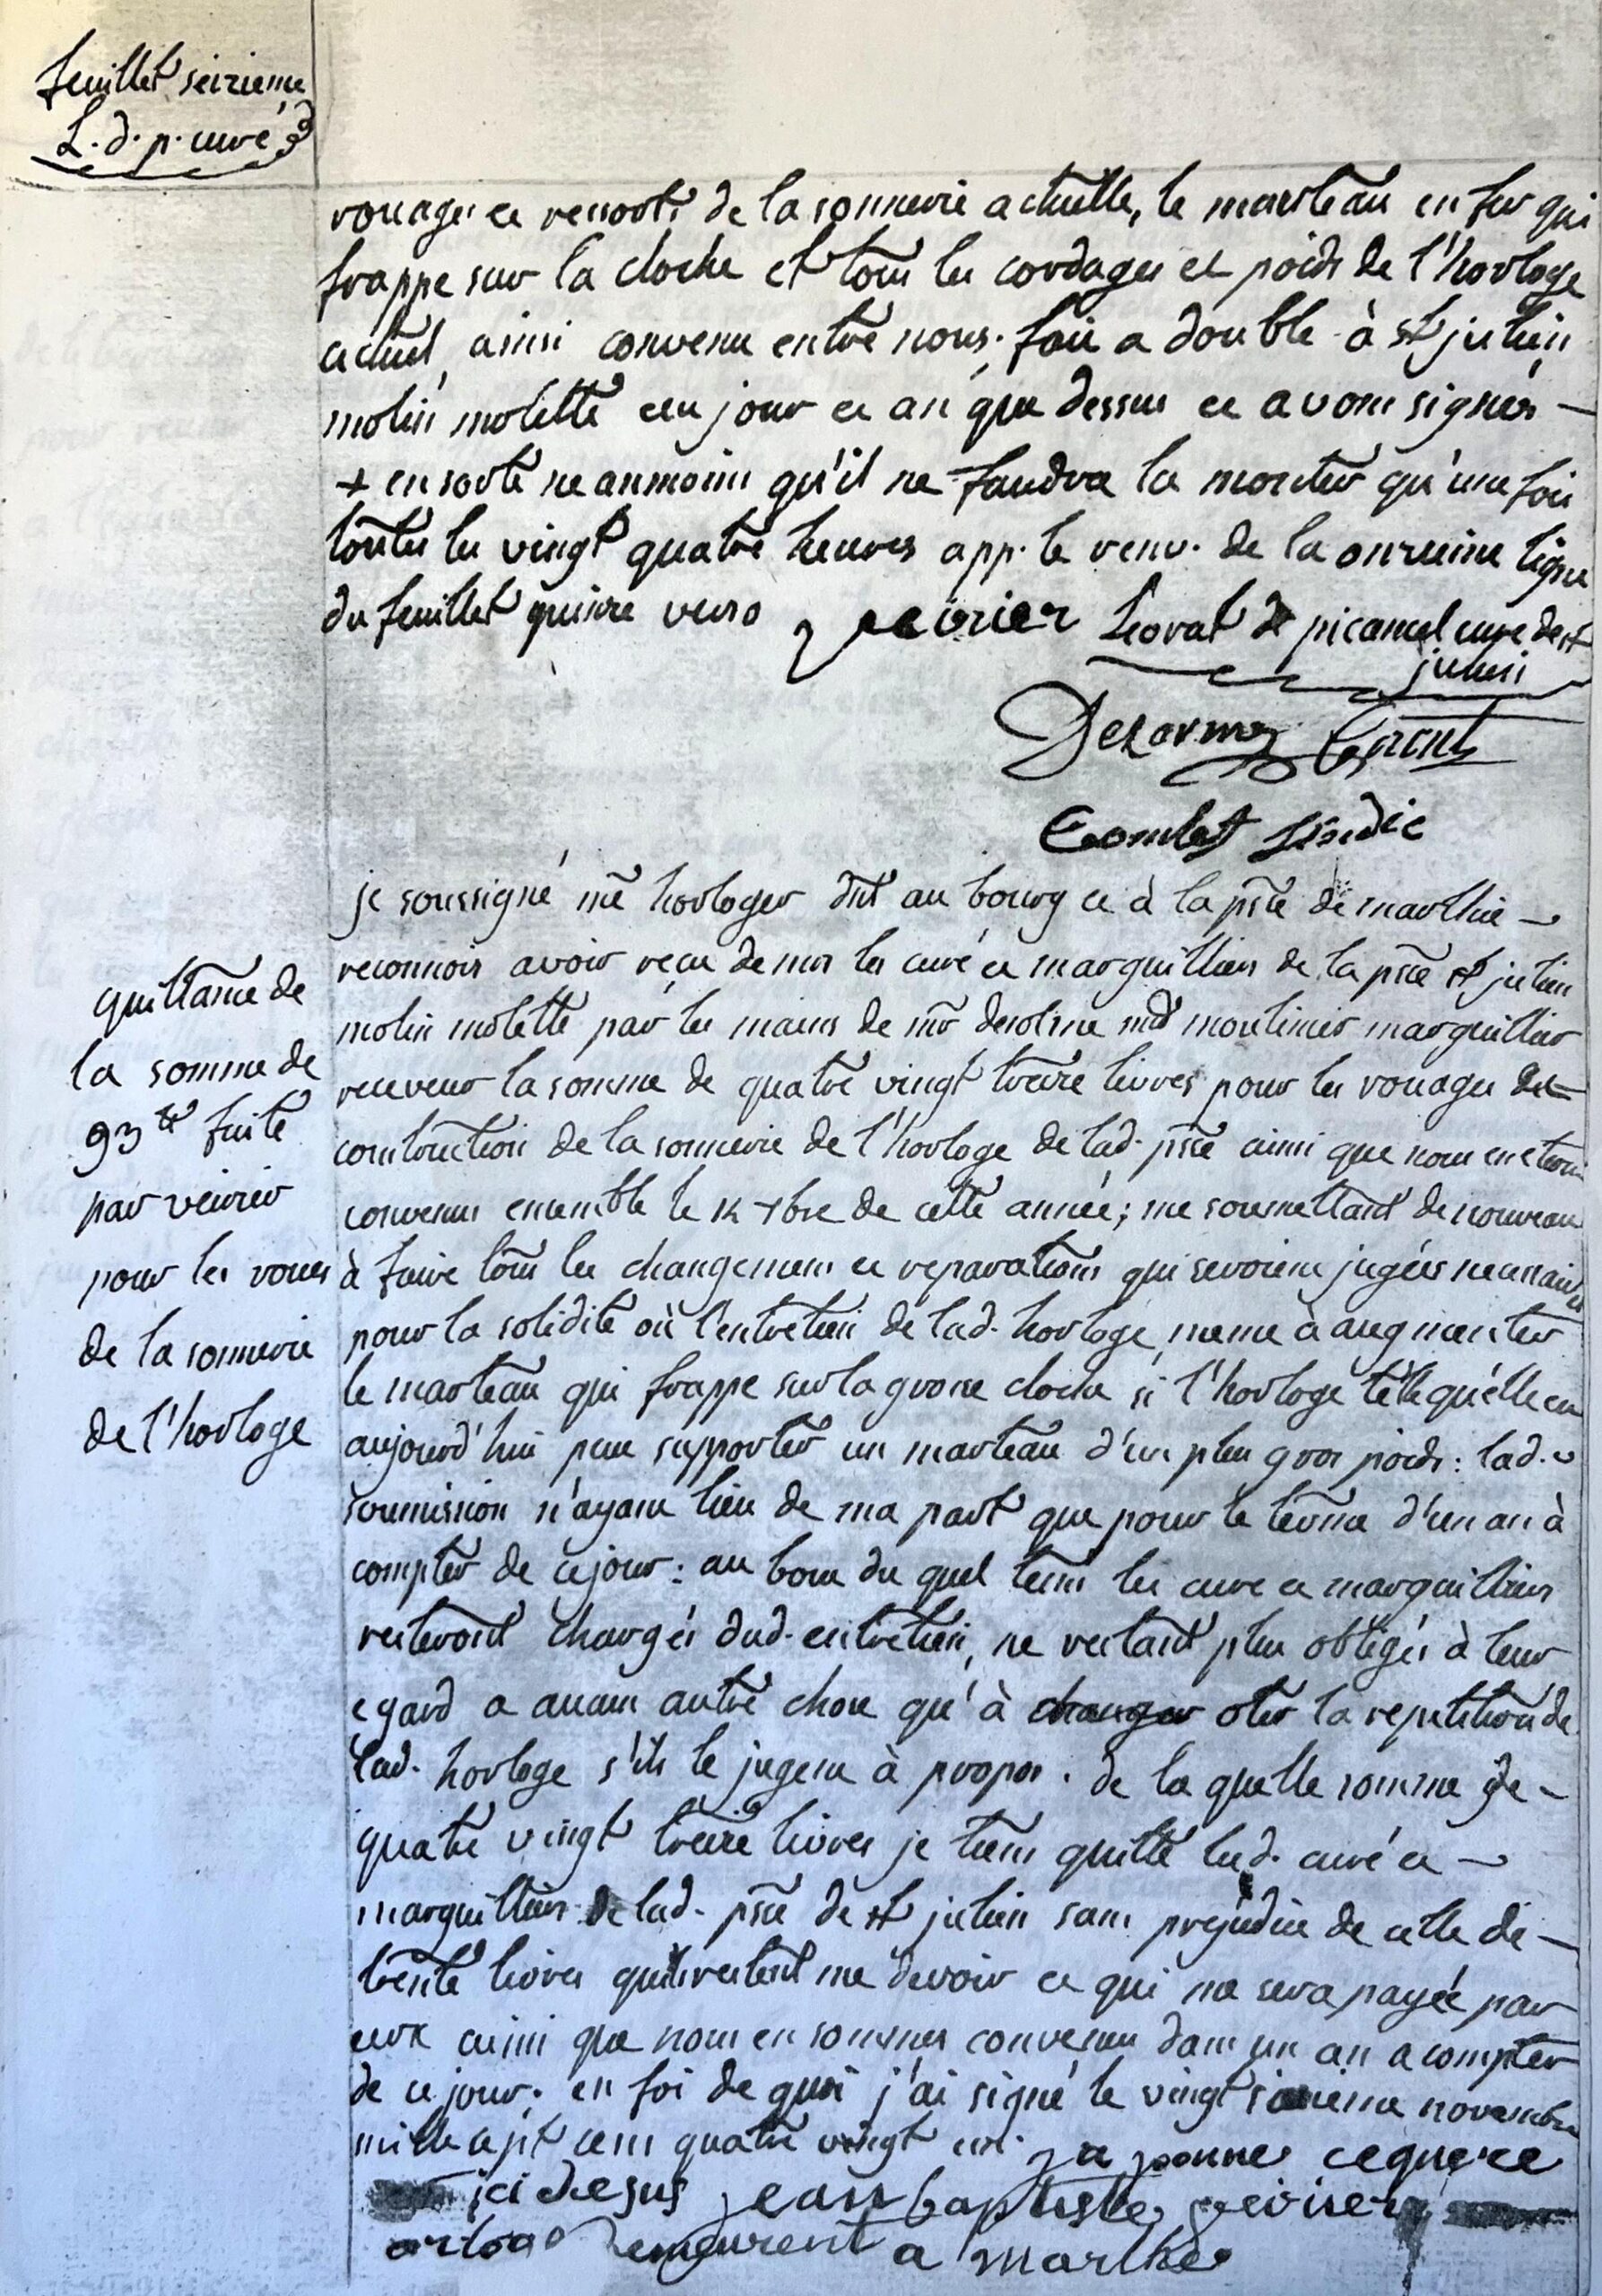 feuillet seizieme
L. d. p. curé
rouages et ressorts de la sonnerie actuelle, le marteau en fer qui
frappe sur la cloche et tous les cordages et poids de l'horloge
actuel, ainsi convenu entre nous. fait a double à st julien
molin molette ces jour et an que dessus et avons signés —
+ en sorte neanmoins qu'il ne faudra la monter qu'une fois
toutes les vingt quatre heures app. le renv. de la onzieme ligne
du feuillet quinze verso veirier Leorat de picancel curé de st
julien
Desormes
Combet sindic
je soussigné me horloger dt au bourg et à la psse de marlhie —
reconnois avoir reçu de mrs les curé et marguilliers de la psse st julien
molin molette par les mains de mr desolme md moulinier marguillier
receveur la somme de quatre vingt treize livres pour les rouages et
construction de la sonnerie de l'horloge de lad. psse ainsi que nous en etions
convenus ensemble le 12 7bre de cette année; me soumettant de nouveau
à faire tous les changemens et reparations qui seroient jugées necessaires
pour la solidité où l'entretien de lad. horloge, meme à augmenter
le marteau qui frappe sur la grosse cloche si l'horloge telle qu'elle est
aujourd'hui peut supporter un marteau d'un plus gros poids: lad.
soumission n'ayant lieu de ma part que pour le terme d'un an à
compter de ce jour: au bout du quel tems les curé et marguilliers
resteront chargés dud. entretien, ne restant plus obligés à leur
egard a aucun autre chose qu'à changer oter la repetition de
lad. horloge s'ils le jugent à propos. de la quelle somme de —
quatre vingt treize livres je tiens quitte lesd. curé et —
marguilliers de lad. psse de st julien sans prejudice de celle de —
trente livres qu'ils restent me devoir et qui me sera payée par
eux ainsi que nous en sommes convenus dans un an a compter
de ce jour. en foi de quoi j'ai signé le vingt sixieme novembre
mille sept cens quatre vingt un.
ici desus jean baptiste veirier
orloge demeurent a marlhes
quittance de
la somme de
93 lt faite
par veirier
pour les roues
de la sonnerie
de l'horloge